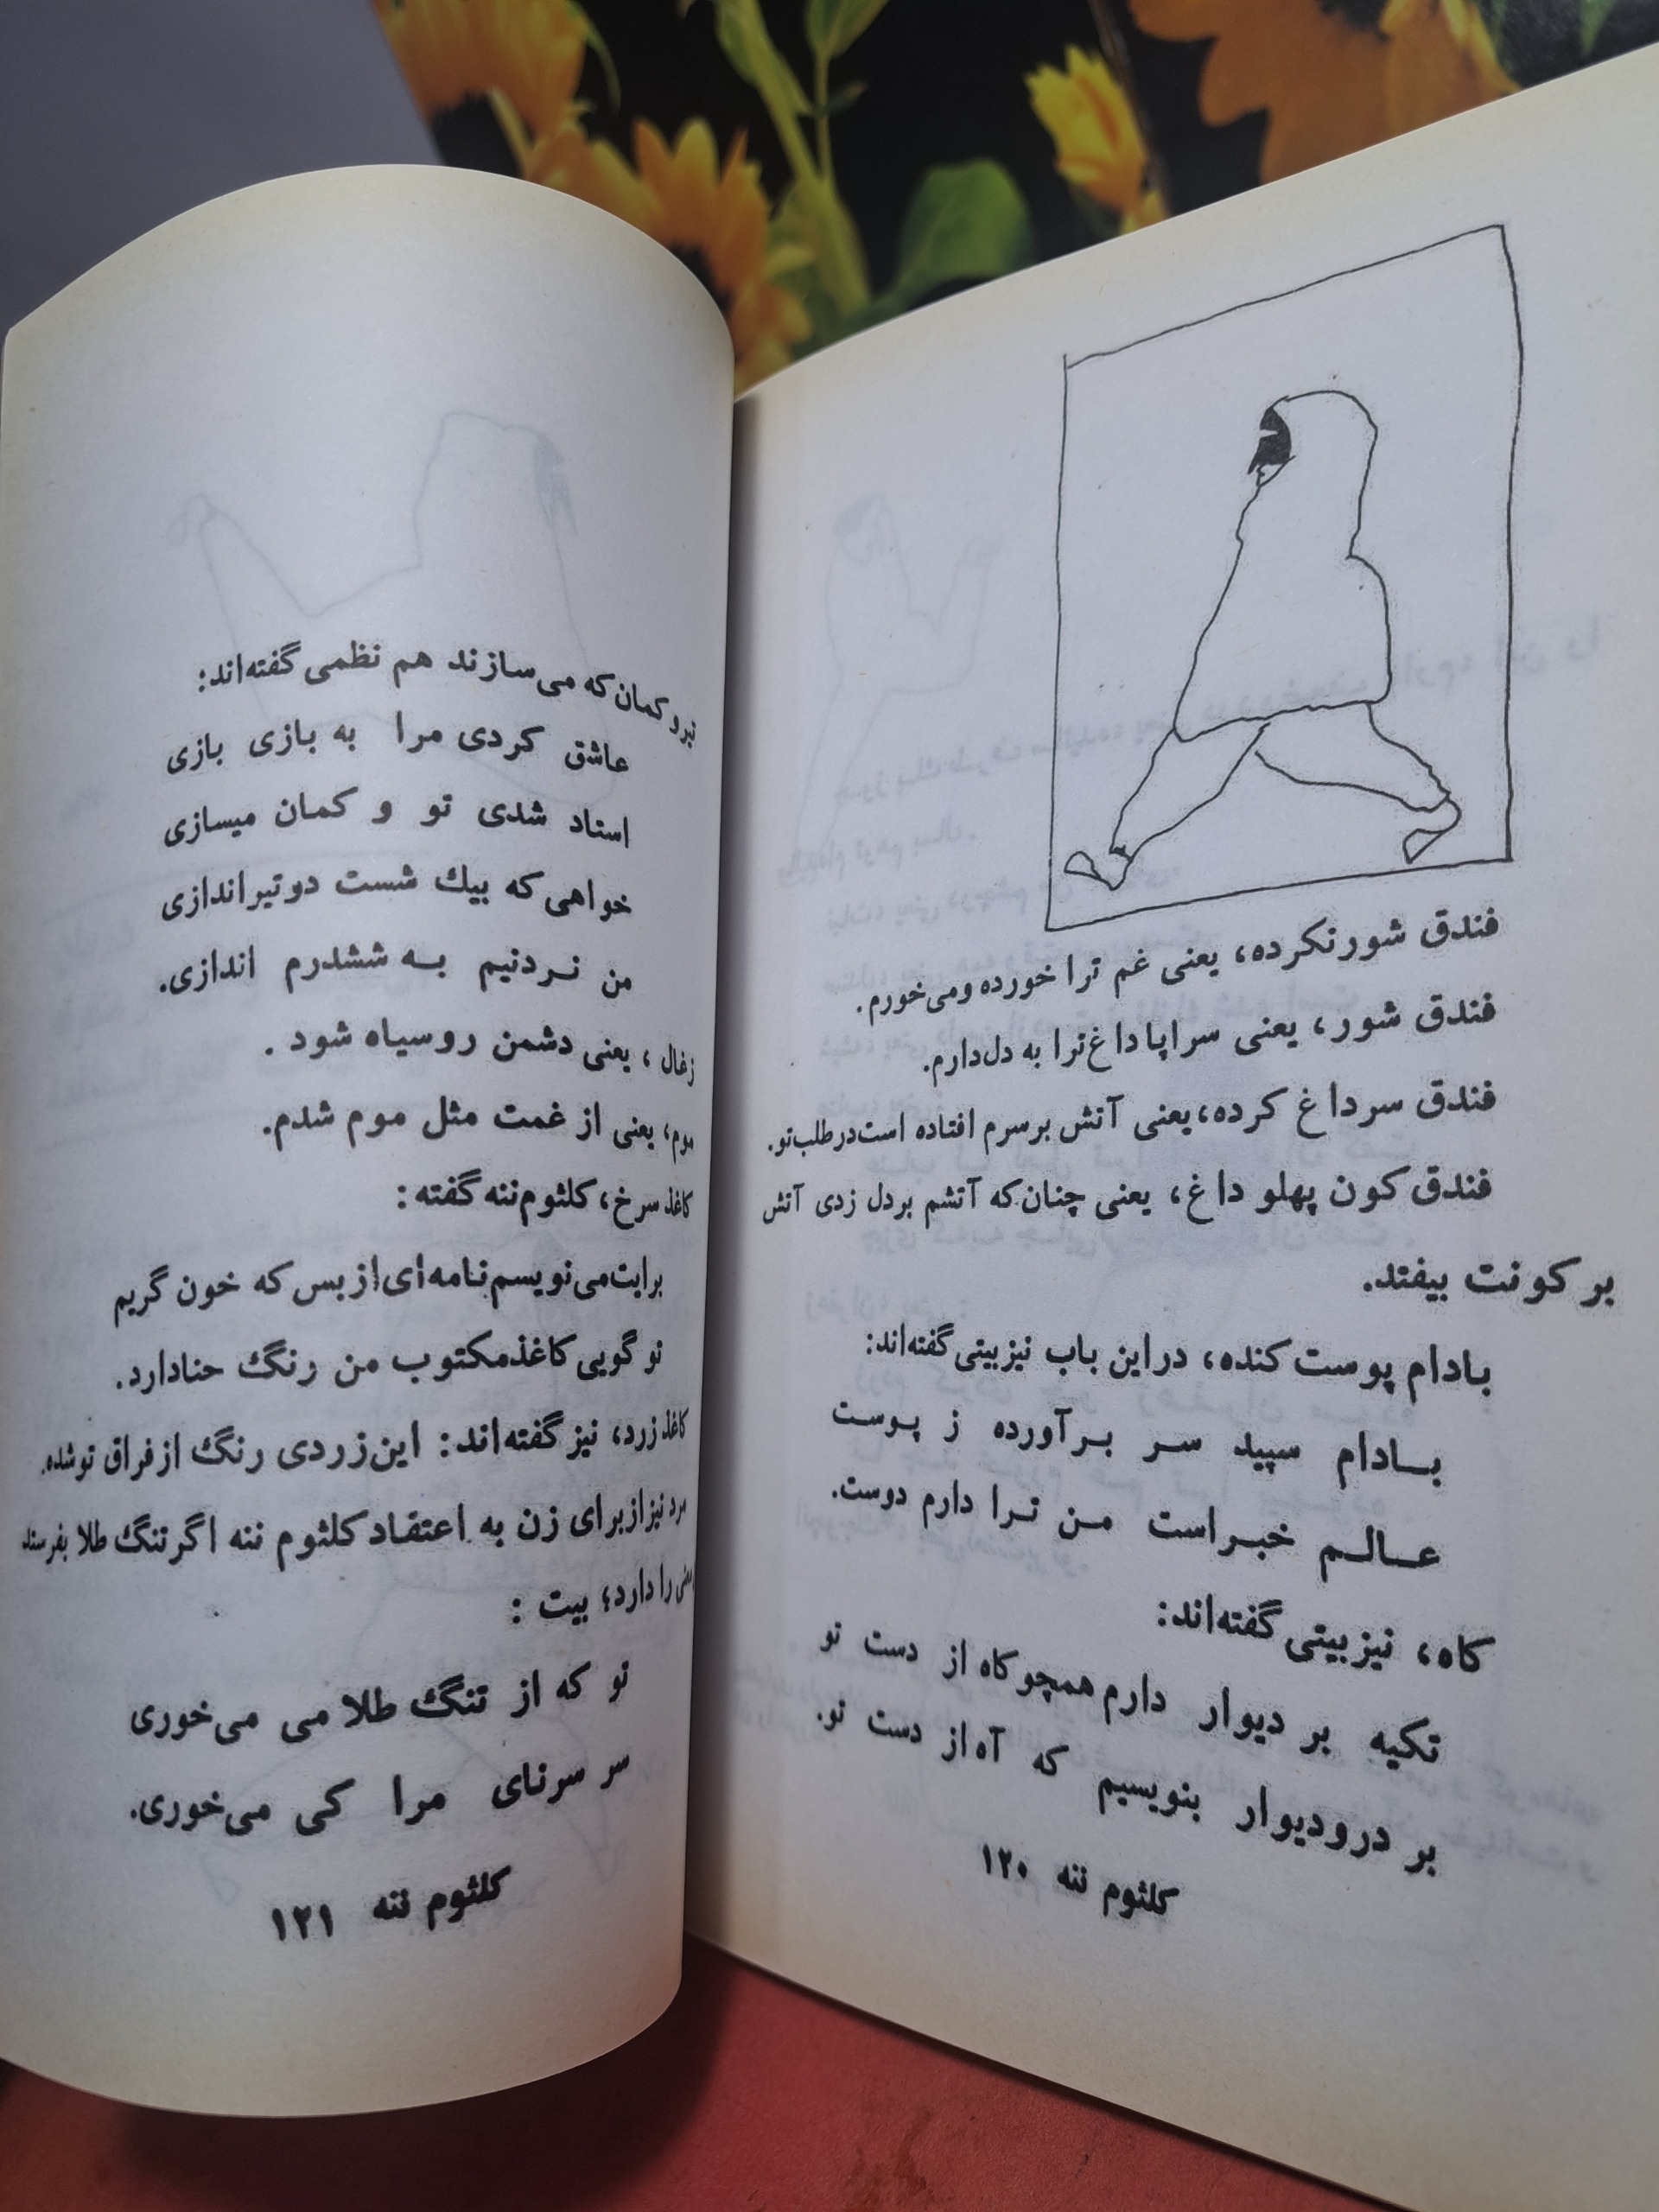 فندق شورنکرده، یعنی غم ترا خورده ومی‌خورم.
فندق شور، یعنی سراپا داغ ترا به دل‌دارم.
فندق سرداغ کرده، یعنی آتش برسرم افتاده است‌درطلب‌تو.
فندق کون پهلو داغ، یعنی چنان‌که آتشم بردل زدی آتش
بر کونت بیفتد.
بادام پوست کنده، دراین باب نیزبیتی گفته‌اند:
بادام سپید سر برآورده ز پوست
عالم خبراست من ترا دارم دوست.
کاه، نیزبیتی گفته‌اند:
تکیه بر دیوار دارم همچو کاه از دست تو
بر درودیوار بنویسیم که آه از دست تو.
کلثوم ننه ۱۲۰
تیر و کمان که می‌سازند هم نظمی گفته‌اند:
عاشق کردی مرا به بازی بازی
استاد شدی تو و کمان میسازی
خواهی که بیك شست دوتیراندازی
من نردنیم به ششدرم اندازی.
زغال، یعنی دشمن روسیاه شود.
موم، یعنی از غمت مثل موم شدم.
کاغذ سرخ، کلثوم‌ننه گفته:
برایت‌می‌نویسم‌نامه‌ای‌ازبس که خون گریم
تو گویی کاغذمکتوب من رنگ حنادارد.
کاغذ زرد، نیز گفته‌اند: این‌زردی رنگ ازفراق توشده.
مرد نیزازبرای زن به اعتقاد کلثوم ننه اگرتنگ طلا بفرستد
را دارد؛ بیت:
تو که از تنگ طلا می می‌خوری
سر سرنای مرا کی می‌خوری.
کلثوم ننه ۱۲۱